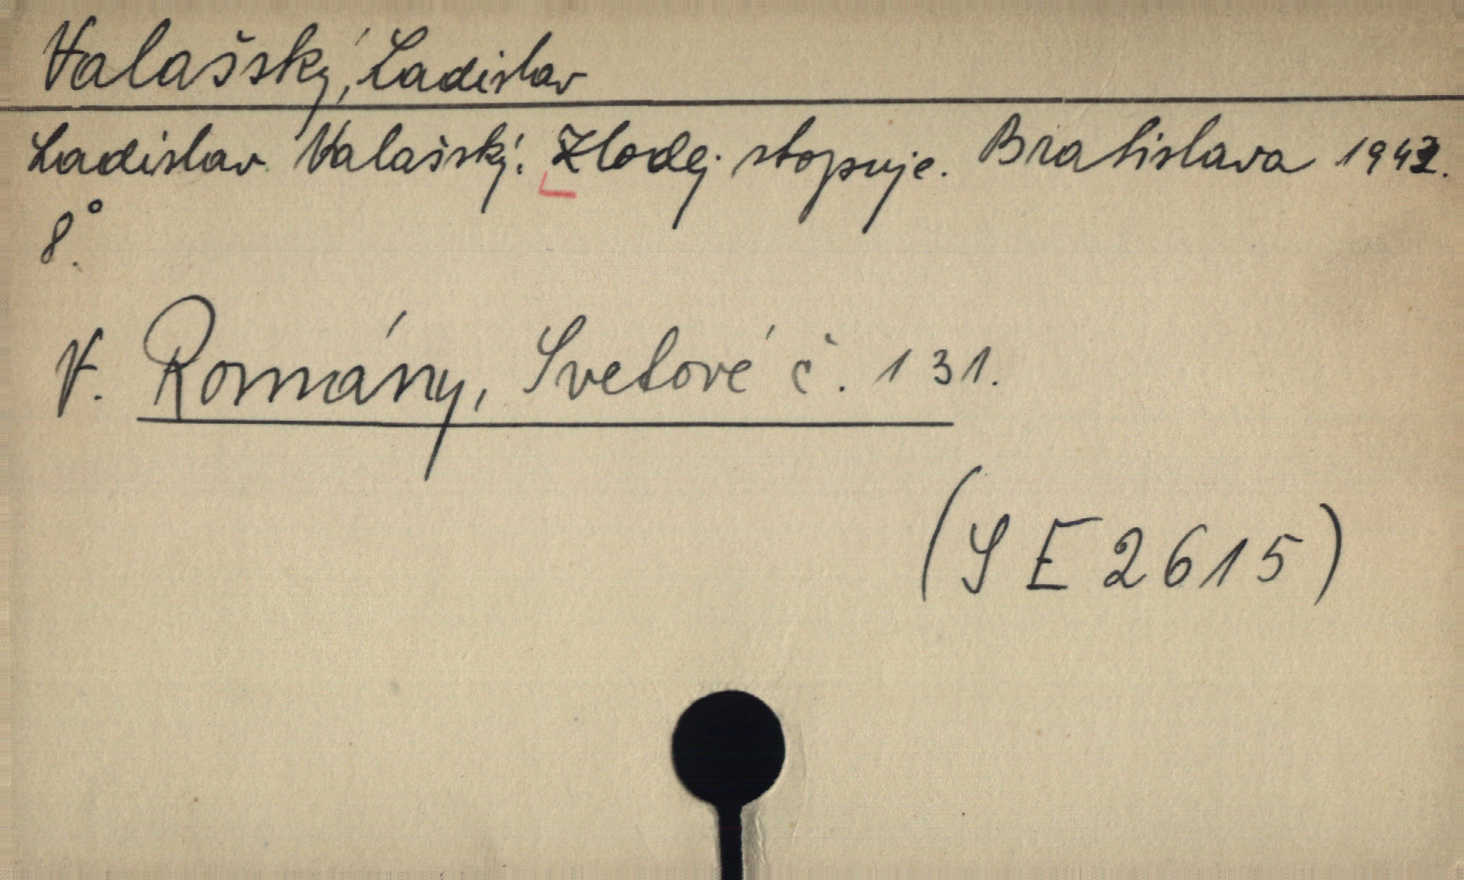 Valašský, Ladislav
Ladislav Valašský: Zlodej stopuje. Bratislava 1942.
8°.
V. Romány, Svetové č. 131.
(SE2615)